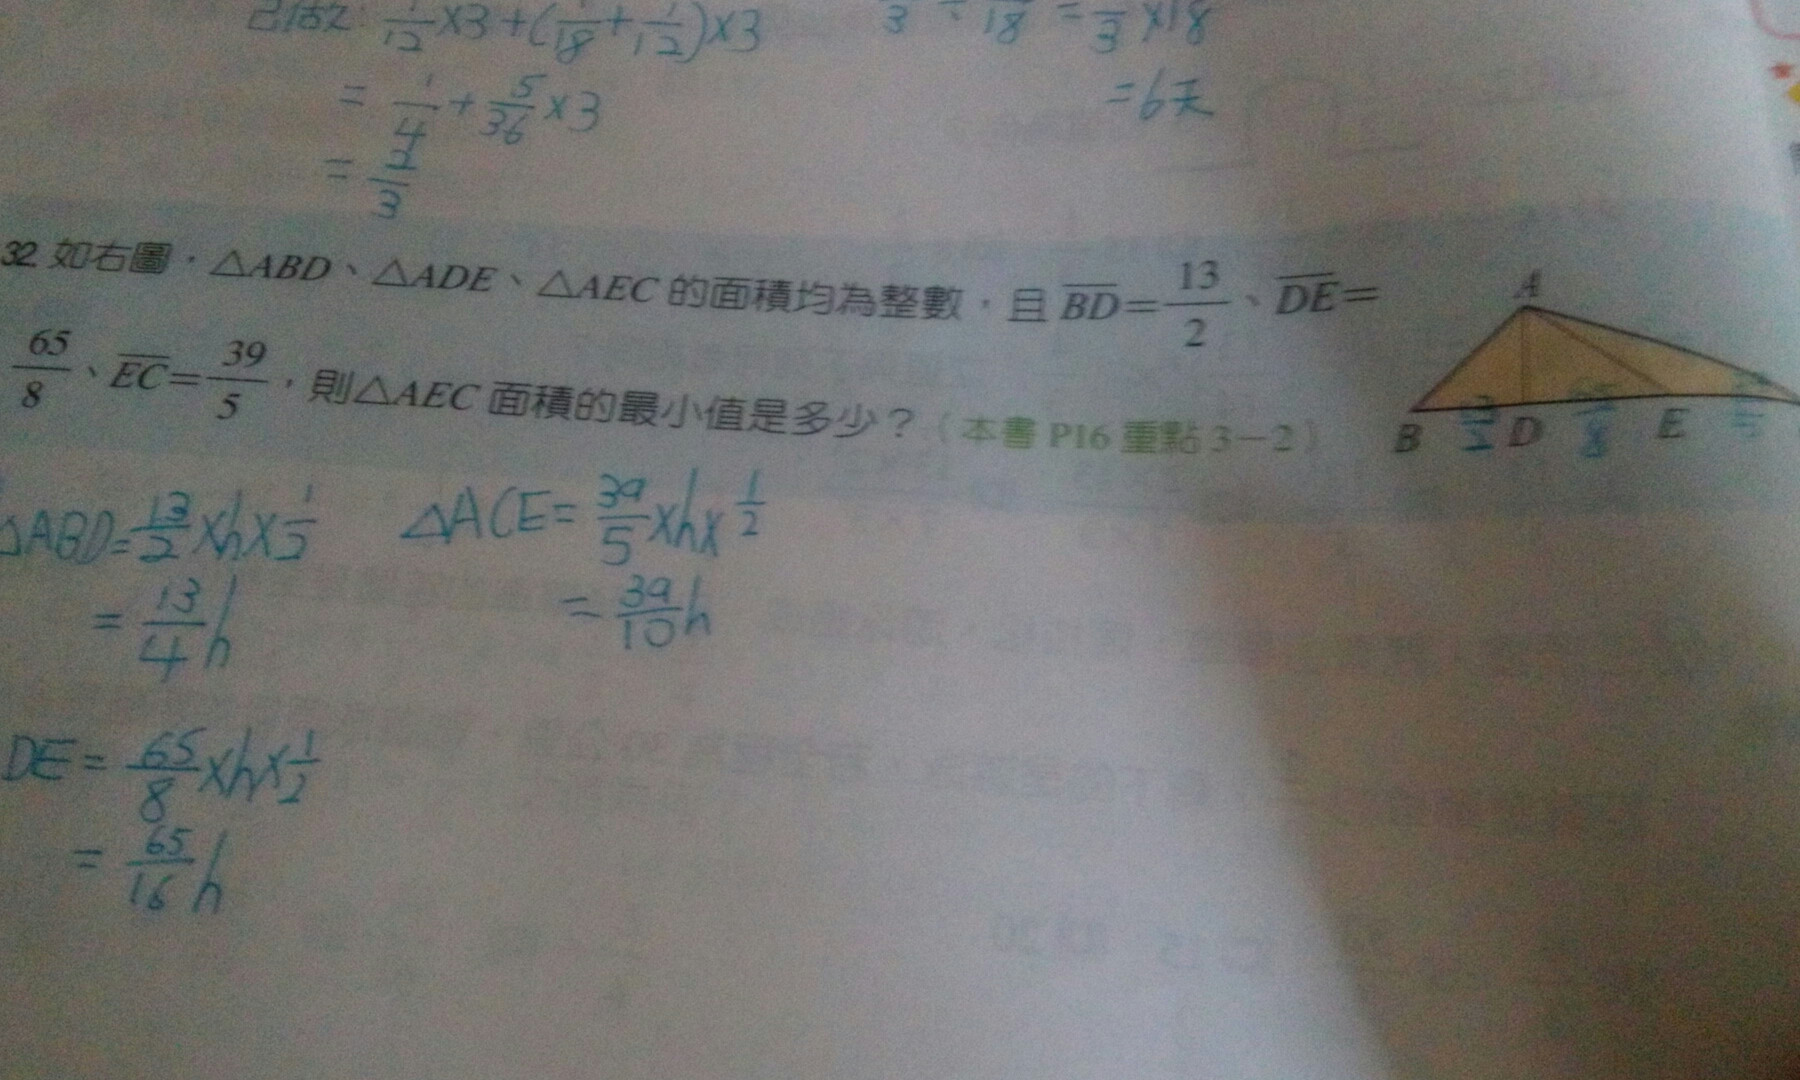 已做: 1/12 ×3+(1/18+1/12)×3
= 1/4 + 5/36 ×3
= 2/3
3 ÷ 18 = 1/3 ×18
=6天
32 如右圖，△ABD、△ADE、△AEC 的面積均為整數，且 BD=13/2、DE=
65/8、EC=39/5，則△AEC 面積的最小值是多少？（本書 P16 重點 3－2）
A
B 13/2 D 65/8 E
△ABD=13/2 ×h×1/2
= 13/4 h
△ACE= 39/5 ×h× 1/2
= 39/10 h
DE= 65/8 ×h×1/2
= 65/16 h